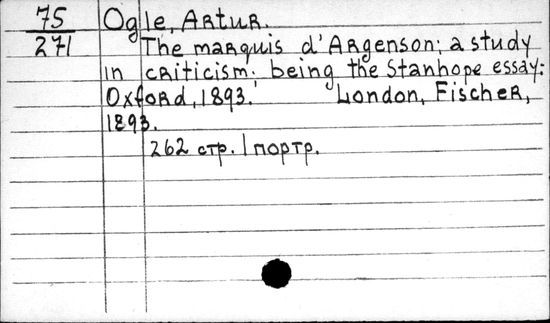 75 Ogle, Artur.
271 The marquis d'Argenson; a study
in criticism; being the Stanhope essay:
Oxford, 1893. London, Fischer,
1893.
262 стр. 1 портр.